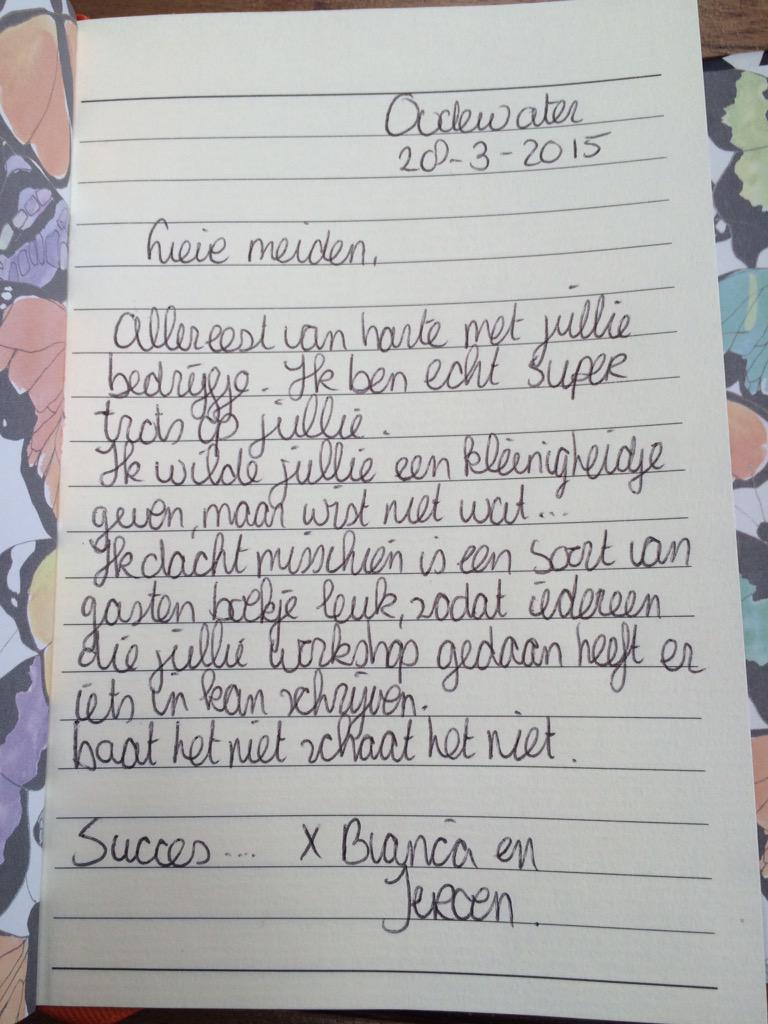 Oudewater
28-3-2015
Lieve meiden,
Allereest van harte met jullie
bedrijfje. Ik ben echt SUPER
trots op jullie.
Ik wilde jullie een kleinigheidje
geven, maar wist niet wat...
Ik dacht misschien is een soort van
gasten boekje leuk, zodat iedereen
die jullie workshop gedaan heeft er
iets in kan schrijven.
baat het niet schaat het niet.
Succes.... X Bianca en
Jeroen.